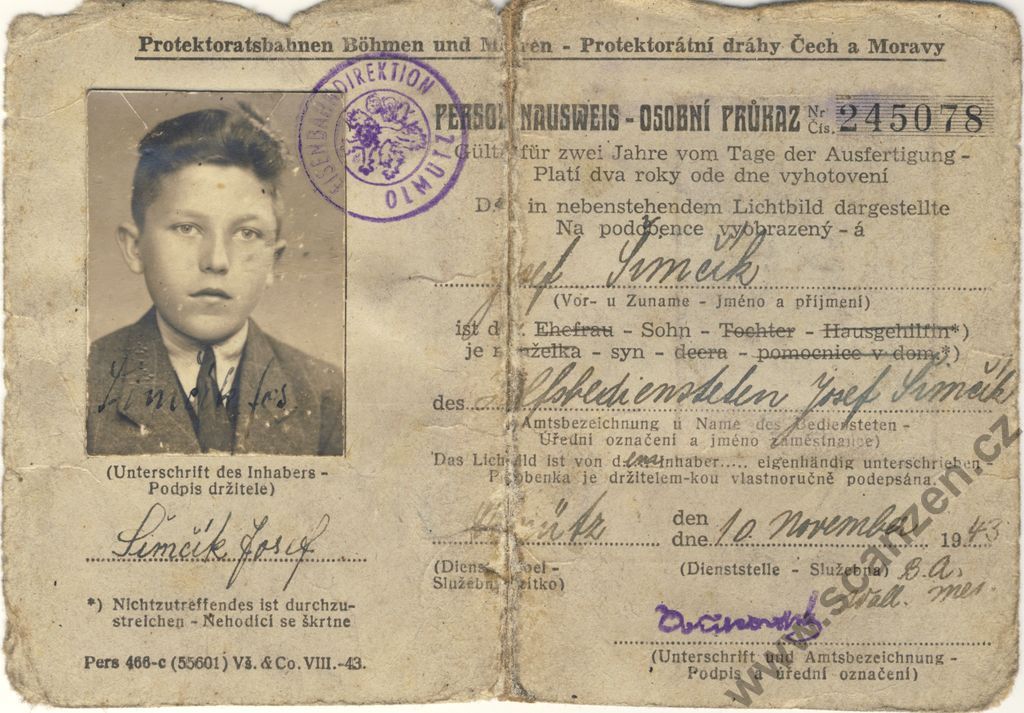 Protektoratsbahnen Böhmen und Mähren - Protektorátní dráhy Čech a Moravy
EISENBAHNDIREKTION OLMÜTZ
PERSONALAUSWEIS - OSOBNÍ PRŮKAZ Nr Čís. 245078
Gültig für zwei Jahre vom Tage der Ausfertigung -
Platí dva roky ode dne vyhotovení
D in nebenstehendem Lichtbild dargestellte
Na podobence vyobrazený - á
Josef Šimčík
(Vor- u Zuname - Jméno a příjmení)
ist d Ehefrau - Sohn - Tochter - Hausgehilfin*)
je manželka - syn - dcera - pomocnice v dom.*)
des Hilfsbediensteten Josef Šimčík
Amtsbezeichnung u Name des Bediensteten -
Úřední označení a jméno zaměstnance)
Das Lichtbild ist von dem Inhaber..... eigenhändig unterschrieben
Podobenka je držitelem-kou vlastnoručně podepsána.
Olmütz den dne 10. November 1943
(Dienstsiegel -
Služební razítko)
(Dienststelle - Služebna) B.A.
Wall. Mes.
(Unterschrift und Amtsbezeichnung -
Podpis a úřední označení)
Šimčík Jos
(Unterschrift des Inhabers -
Podpis držitele)
Šimčík Josef
*) Nichtzutreffendes ist durchzu-
streichen - Nehodící se škrtne
Pers 466-c (55601) Vš. & Co. VIII.-43.
www.scanzen.cz